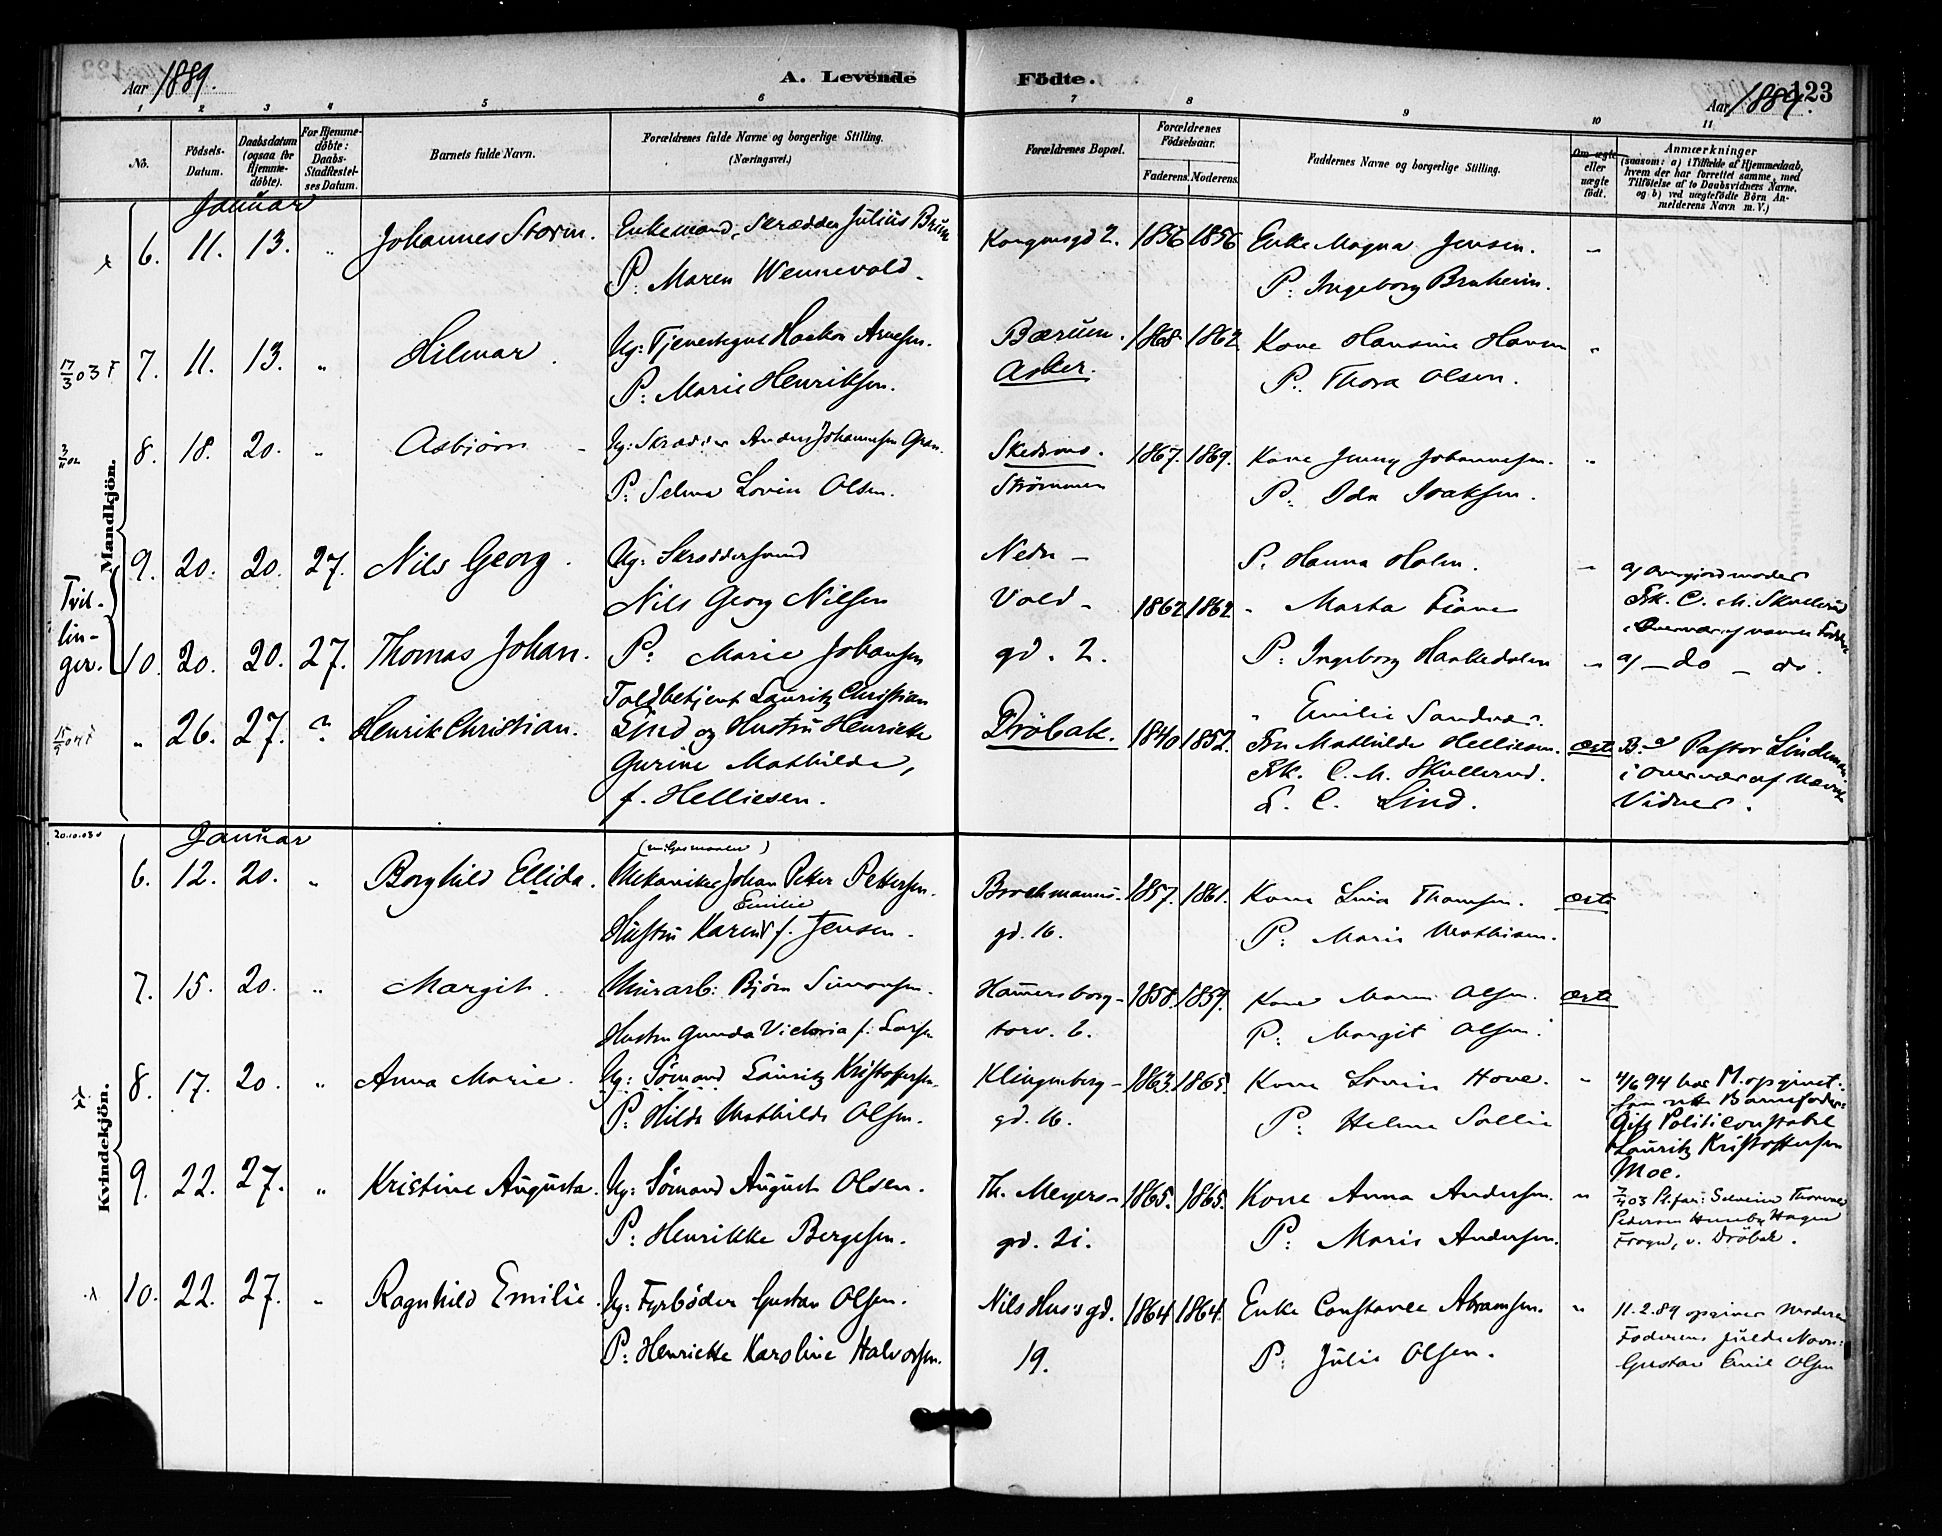 Aar 1889.
A. Levende Födte.
Aar 1889.
123
1 2 3 4 5 6 7 8 9 10 11
No.
Födsels-Datum.
Daabsdatum (ogsaa for Hjemmedöbte).
For Hjemmedöbte: Daabs-Stadfæstelses Datum.
Barnets fulde Navn.
Forældrenes fulde Navne og borgerlige Stilling. (Næringsvei.)
Forældrenes Bopæl.
Forældrenes Födselsaar.
Faderens. Moderens.
Faddernes Navne og borgerlige Stilling.
Om ægte eller uægte födt.
Anmærkninger
(saasom: a) i Tilfælde af Hjemmedaab, hvem der har forrettet samme, med Tilföielse af to Daabsvidners Navne. og b) ved uægtefödte Börn Anmelderens Navn m. V.)
Mandkjön.
Januar
6. 11. 13. " Johannes Storm. Enkemand, Skrædder Julius Bruun Kongensgd 2. 1856 1856 Enke Magna Jensen. "
P: Maren Wennevold. P: Ingeborg Bruheim.
17/3 03 F 7. 11. 13. " Hilmar. Ug: Tjenestegut Haakon Arnesen. Bærum. 1868 1862 Kone Hansine Hansen "
P: Marie Henriksen. Asker. P: Thora Olsen.
8. 18. 20. " Asbjørn Ug: Skrædder Anders Johannesen Gran. Skedsmo. 1867. 1869. Kone Jenny Johannesen. "
P: Selma Lovise Olsen. Strømmen P: Ida Isaksen.
Tvillinger.
9. 20. 20. 27. Nils Georg. Ug: Skræddersvend Nedre P. Hanna Holm. "
Nils Georg Nilsen Vold- 1862 1862 " Marta
10. 20. 20. 27. Thomas Johan. P: Marie Johansen gd. 2. P: Ingeborg " a/ - do - do.
a/ Overjordmoder
Frk. C. M. Skullerud
Toldbetjent Lauritz Christian " Emilie
" 26. 27. ? Henrik Christian. Lind og Hustru Henrikke Dröbak. 1840 1852. Fru Mathilde Helliesen. ægte B. af Pastor Lindeman.
Gurine Mathilde, Frk. C. M. Skullerud. i Overvær af nævnte
f. Helliesen. L. C. Lind. Vidner.
Kvindekjön.
20.10.03
Januar
6. 12. 20. " Borghild Ellida. Mekaniker Johan Petter Pettersen. Brochmanns- 1857. 1861. Kone Lina Thomsen. ægte
Hustru Karen Emilie f. Jensen. gd. 16. P: Marie Mathisen.
7. 15. 20. " Margit. Murarb: Bjørn Simonsen. Hammersborg- 1858. 1859. Kone Maren Olsen. ægte
Hustru Gunda Victoria f. Larsen torv. 6. P: Margit Olsen.
8. 17. 20. " Anna Marie. Ug: Sømand Lauritz Kristoffersen. Klingenberg- 1863. 1865. Kone Lovise Hove. "
P: Hilda Mathilde Olsen. gd. 16. P: Helma Sollie
4/6 94 har M. opgivet
som rette Barnefader:
Gift Politikonstabel
Lauritz Kristoffersen
Moe.
9. 22. 27. " Kristine Augusta. Ug: Sømand August Olsen. Th. Meyers- 1865. 1865. Kone Anna Andersen. "
P: Henrikke Bergesen. gd. 21. P: Marie Andersen.
Pl.far: Severin Thorvald
Pedersen Hagen
Frogn, v. Dröbak.
10. 22. 27. " Ragnhild Emilie. Ug: Fyrbøder Gustav Olsen. Nils Hus's gd. 1864 1864. Enke Constance Abramsen. "
P: Henriette Karoline Halvorsen. 19. P: Julie Olsen.
11.2.89 opgiver Moderen
Faderens fulde Navn:
Gustav Emil Olsen